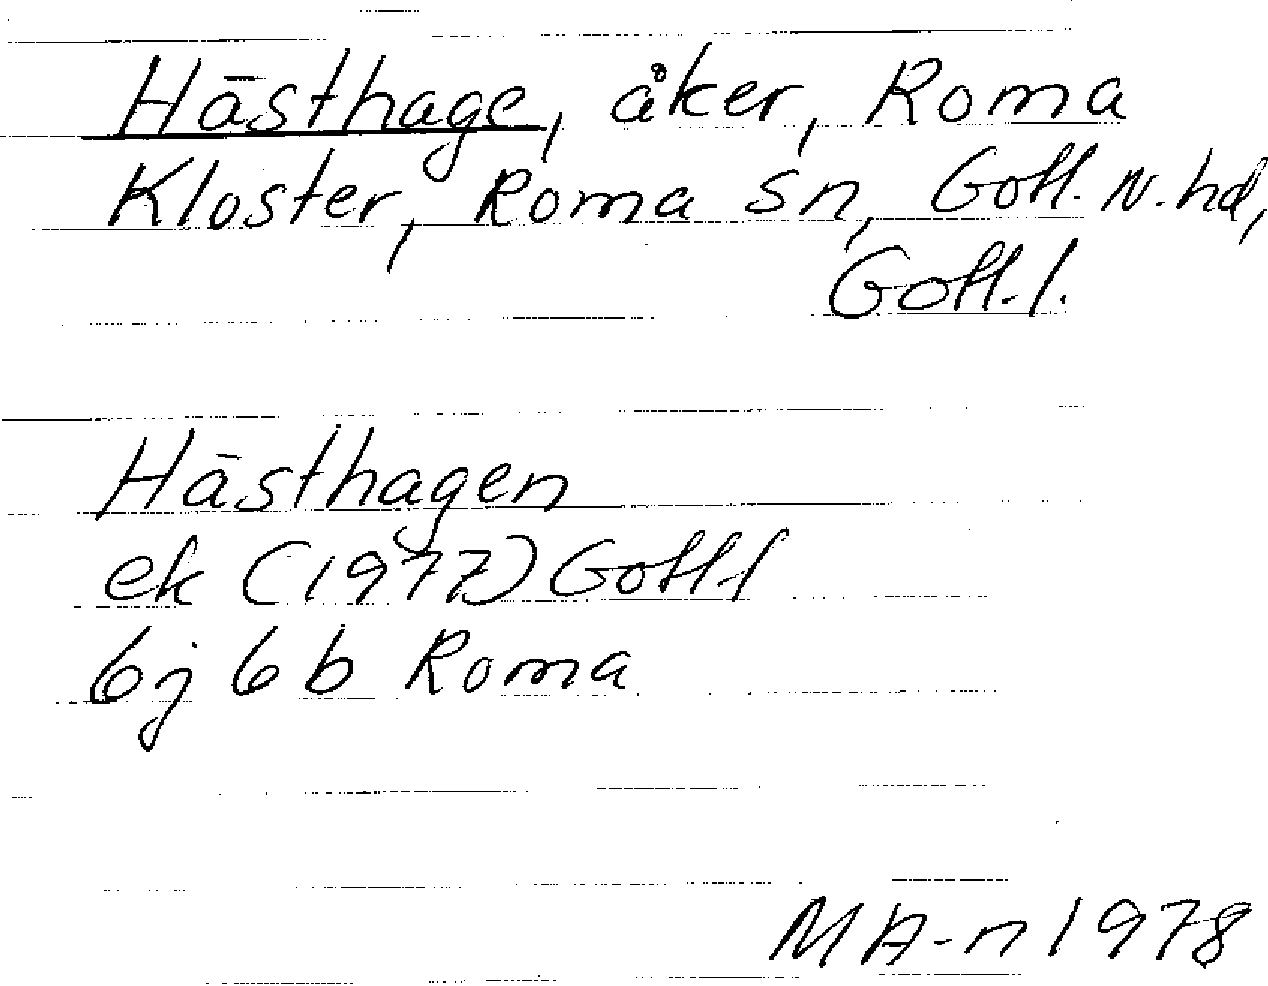 Hästhage, åker, Roma
Kloster, Roma sn, Gotl. N. hd,
Gotl. l.
Hästhagen
ek (1977) Gotl l
6j 6 b Roma
MA-n 1978